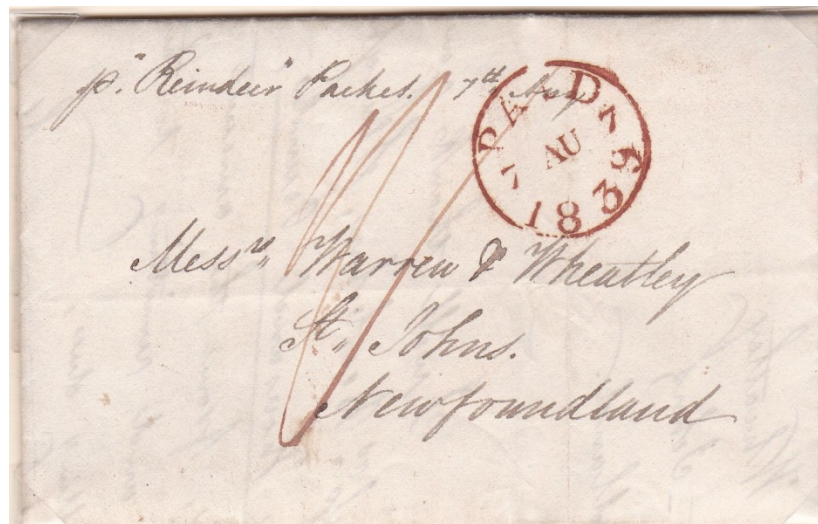 p. "Reindeer" Packet. 7th Aug
PAID
7 AU
1839
Messrs, Warren & Wheatley
St,, Johns.
Newfoundland